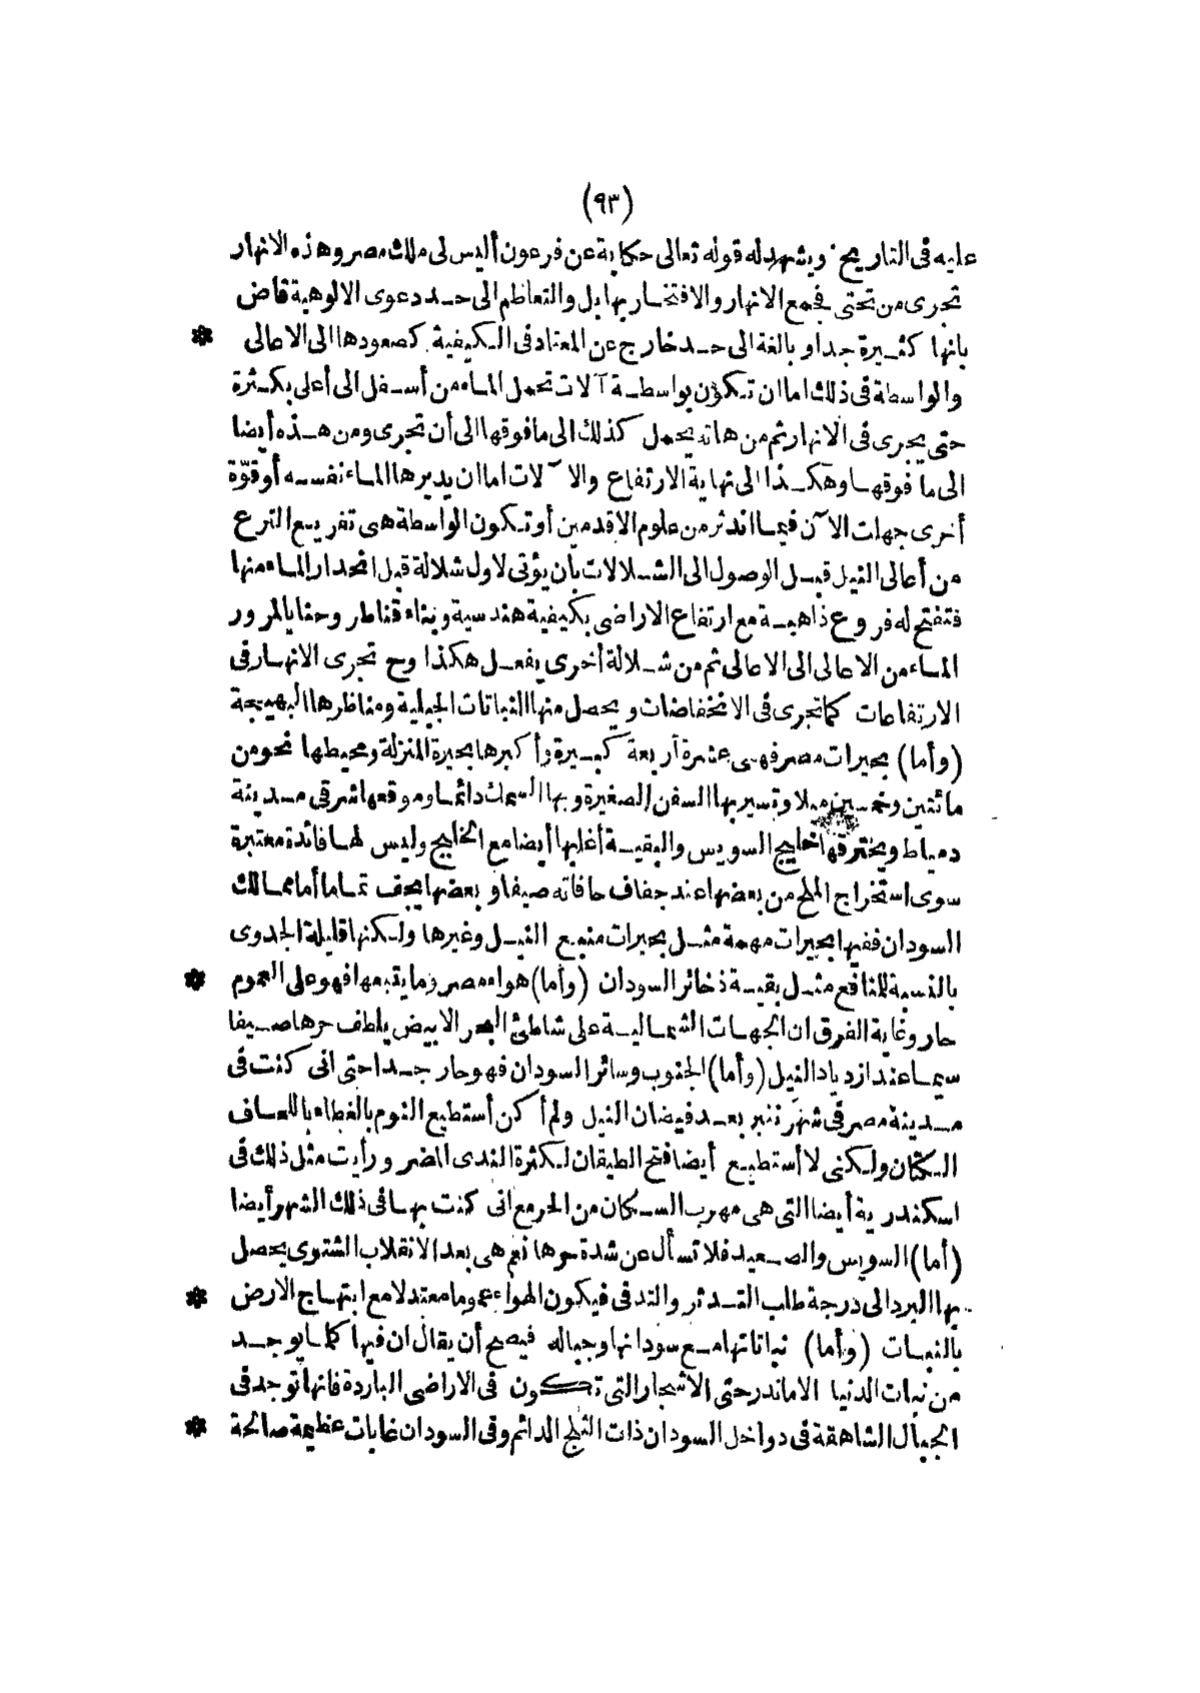 (٩٣)
عليه فى التاريخ ويشهد له قوله تعالى حكاية عن فرعون أليس لى ملك مصر وهذه الانهار
تجرى من تحتى فجمع الانهار والافتخار بها بل والتعاظم الى حد دعوى الالوهية قاض
بانها كثيرة جدا وبالغة الى حد خارج عن المعتاد فى الكيفية كصعودها الى الاعالى *
والواسطة فى ذلك اما ان تكون بواسطة آلات تحمل الماء من أسفل الى أعلى بكثرة
حتى يجرى فى الانهار ثم من هاته يحمل كذلك الى ما فوقها الى أن تجرى ومن هذه أيضا
الى ما فوقها وهكذا الى نهاية الارتفاع والآلات اما ان يديرها الماء نفسه أو قوّة
أخرى جهات الآن فيما اندثر من علوم الاقدمين أو تكون الواسطة هى تفريع الترع
من أعالى النيل قبل الوصول الى الشلالات بأن يؤتى لاول شلالة قبل انحدار الماء منها
فتفتح له فروع ذاهبة مع ارتفاع الاراضى بكيفية هندسية وبناء قناطر وحنايا لمرور
الماء من الاعالى الى الاعالى ثم من شلالة أخرى يفعل هكذا وح تجرى الانهار فى
الارتفاعات كما تجرى فى الانخفاضات ويحصل منها النباتات الجبلية ومناظرها البهيجة
(وأما) بحيرات مصر فهى عشرة أربعة كبيرة وأكبرها بحيرة المنزلة ومحيطها نحو من
مائتين وخمسين ميلا وتسير بها السفن الصغيرة وبها السمك دائما وموقعها شرقى مدينة
دمياط ويخترقها خليج السويس والبقية أغلبها أيضا مع الخليج وليس لها فائدة معتبرة
سوى استخراج الملح من بعضها عند جفاف حافاته صيفا وبعضها يجف تماما أما ممالك
السودان ففيها بحيرات مهمة مثل بحيرات منبع النيل وغيرها ولكنها قليلة الجدوى
بالنسبة للمنافع مثل بقية ذخائر السودان (وأما) هواء مصر وما يتبعها فهو على العموم *
حار وغاية الفرق ان الجهات الشمالية على شاطئ البحر الابيض يلطف حرها صيفا
سيما عند ازدياد النيل (وأما) الجنوب وسائر السودان فهو حار جدا حتى انى كنت فى
مدينة مصر فى شهر نونبر بعد فيضان النيل ولم أكن أستطيع النوم بالغطاء باللحاف
الكتان ولكنى لا أستطيع أيضا فتح الطيقان لكثرة الندى المضر ورأيت مثل ذلك فى
اسكندرية أيضا التى هى مهرب السكان من الحر مع انى كنت بها فى ذلك الشهر أيضا
(أما) السويس والصعيد فلا تسأل عن شدة حرها نعم هى بعد الانقلاب الشتوى يحصل
بها البرد الى درجة طلب التدثر والتدفى فيكون الهواء عموما معتدلا مع ابتهاج الارض *
بالنبات (وأما) نباتاتها مع سودانها وجباله فيصح أن يقال ان فيها كلما يوجد
من نبات الدنيا الا ما ندر حتى الاشجار التى تكون فى الاراضى الباردة فانها توجد فى
الجبال الشاهقة فى دواخل السودان ذات الثلج الدائم وفى السودان غابات عظيمة صالحة *